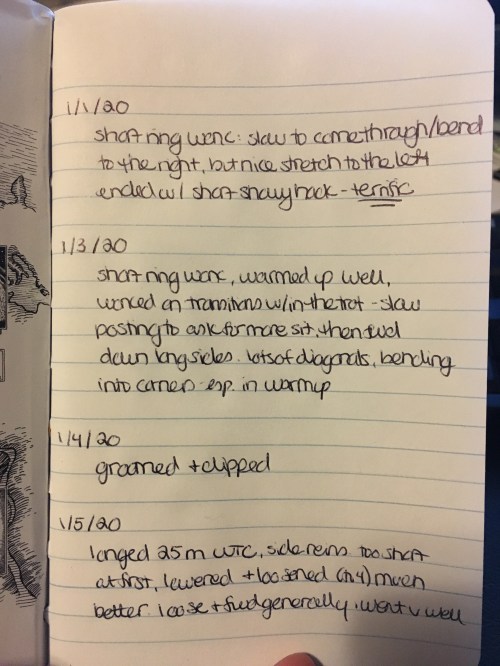 1/1/20
short ring work: slow to come through/bend
to the right, but nice stretch to the left
ended w/ short snowy hack - terrific
1/3/20
short ring work, warmed up well,
worked on transitions w/in the trot - slow
posting to ask for more sit, then fwd
down long sides. lots of diagonals, bending
into corners esp. in warmup
1/4/20
groomed + clipped
1/5/20
longed 25 m WTC, side reins too short
at first, lowered + loosened (h4) much
better. loose + fwd generally, went v well